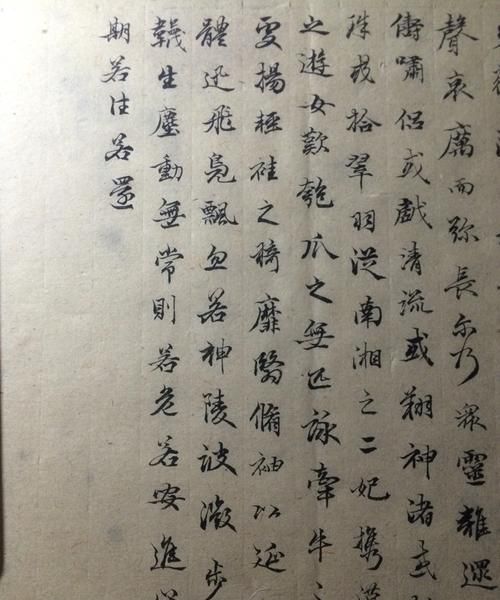 聲哀厲而弥長尔乃眾靈雜遝
儔嘯侶或戲清流或翔神渚或
珠或拾翠羽從南湘之二妃携漢
之遊女歎匏瓜之無匹詠牽牛之
雯揚輕袿之猗靡翳脩袖以延
體迅飛鳧飄忽若神陵波微步
韈生塵動無常則若危若安進
期若往若還